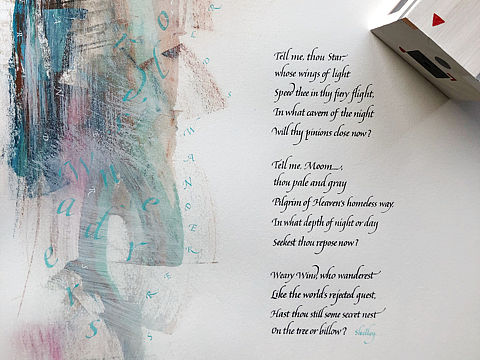 Tell me, thou Star
whose wings of light
Speed thee in thy fiery flight,
In what cavern of the night
Will thy pinions close now?
Tell me, Moon,
thou pale and gray
Pilgrim of Heaven's homeless way,
In what depth of night or day
Seekest thou repose now?
Weary Wind, who wanderest
Like the world's rejected guest,
Hast thou still some secret nest
On the tree or billow?
Shelley